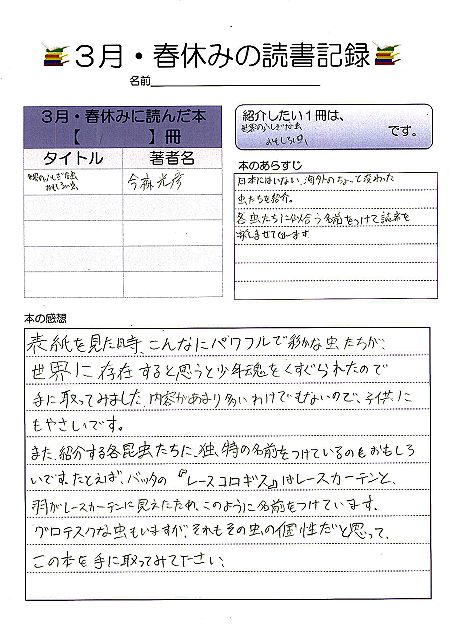 3月・春休みの読書記録
名前
3月・春休みに読んだ本
【 】冊
タイトル 著者名
世界のふしぎな虫
おもしろい虫
今森光彦
紹介したい1冊は、
世界のふしぎな虫
おもしろい虫
です。
本のあらすじ
日本にはいない、海外のちょっと変わった
虫たちを紹介。
各虫たちに似合う名前をつけて読者を
楽しませています
本の感想
表紙を見た時、こんなにパワフルで彩かな虫たちが、
世界に存在すると思うと少年魂をくすぐられたので
手に取ってみました。内容があまり多いわけでもないので、子供に
もやさしいです。
また、紹介する各昆虫たちに、独特の名前をつけているのもおもしろ
いです。たとえば、バッタの『レースコロギス』はレースカーテンと、
羽がレースカーテンに見えたため、このように名前をつけています。
グロテスクな虫もいますが、それもその虫の個性だと思って、
この本を手に取ってみて下さい、